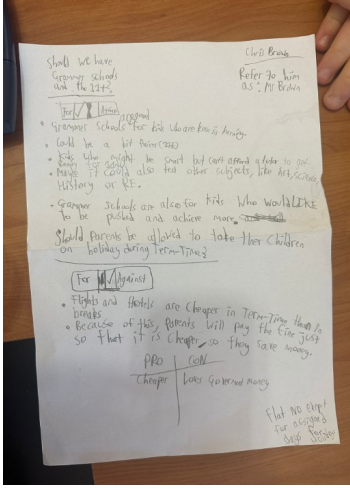 Should we have
Grammer schools
and the 11+?
Chris Brown
Refer to him
as: Mr Brown
For Against
• Grammer Schools for kids who are
• Could be a bit
• Kids who might be smart but can't afford a tutor to
• Maybe it could also test other subjects, like Art/Science,
History or RE.
• Grammar schools are also for kids who would LIKE
to be pushed and achieve more
Should Parents be allowed to take their Children
on holiday during Term-Time?
For Against
• Flights and Hotels are cheaper in Term-Time than in
breaks
• Because of this, Parents will pay the fine just
so that it is cheaper, so they save money.
PRO CON
Cheaper Loses Goverment money
Flat NO exept
for assigned
days for